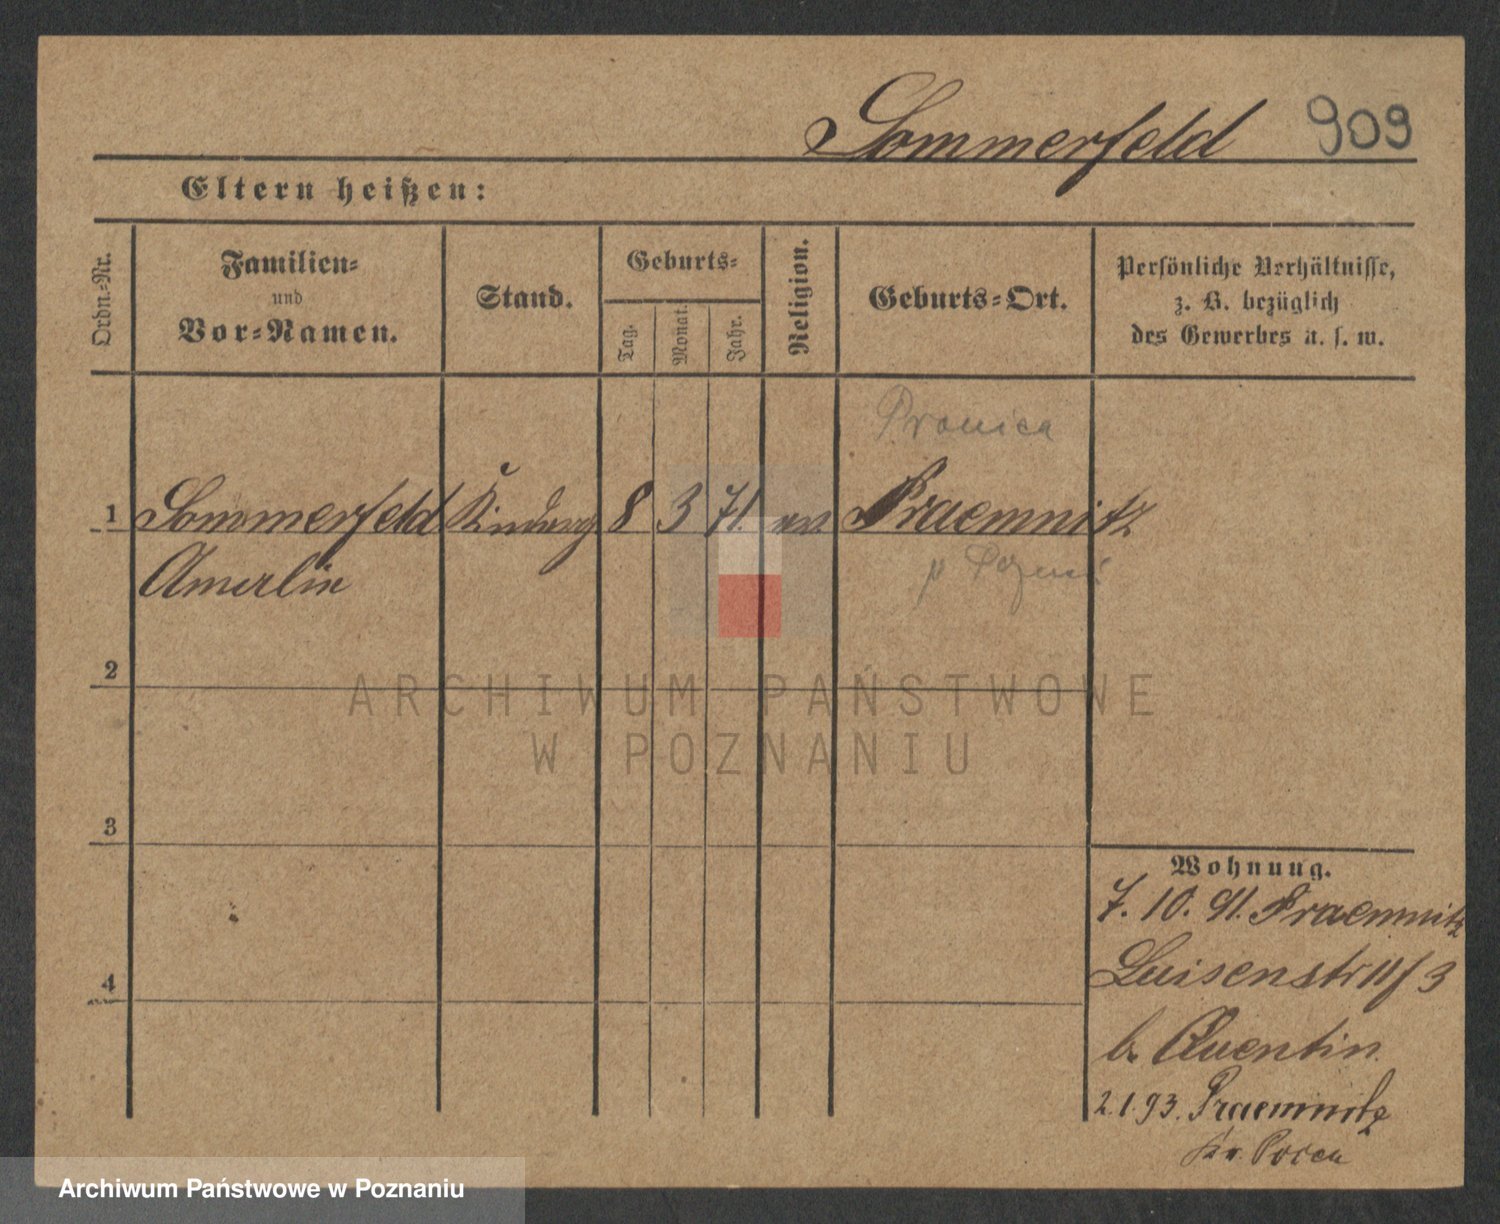 Sommerfeld 909
Eltern heißen:
Ordn.-Nr.
Familien-
und
Vor-Namen.
Stand.
Geburts-
Tag.
Monat.
Jahr.
Religion.
Geburts-Ort.
Persönliche Verhältnisse,
z. B. bezüglich
des Gewerbes u. s. w.
1 Sommerfeld 8 3 71. ev. Praemnitz
2
3
4
Wohnung.
7. 10. 91. Praemnitz
Luisenstr 11/3
b. Quentin.
2.1.93. Praemnitz
Kr. Posen
ARCHIWUM PAŃSTWOWE
W POZNANIU
Archiwum Państwowe w Poznaniu